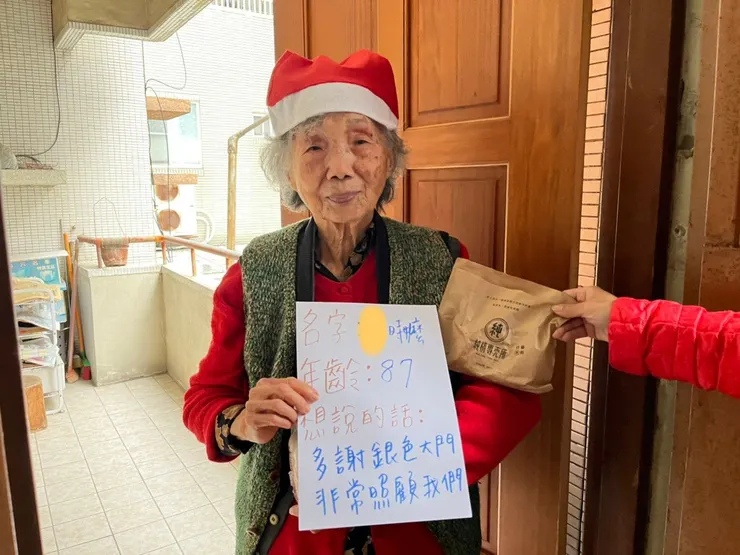 名字 時麼
年齡：87
想說的話：
多謝銀色大門
非常照顧我們
純